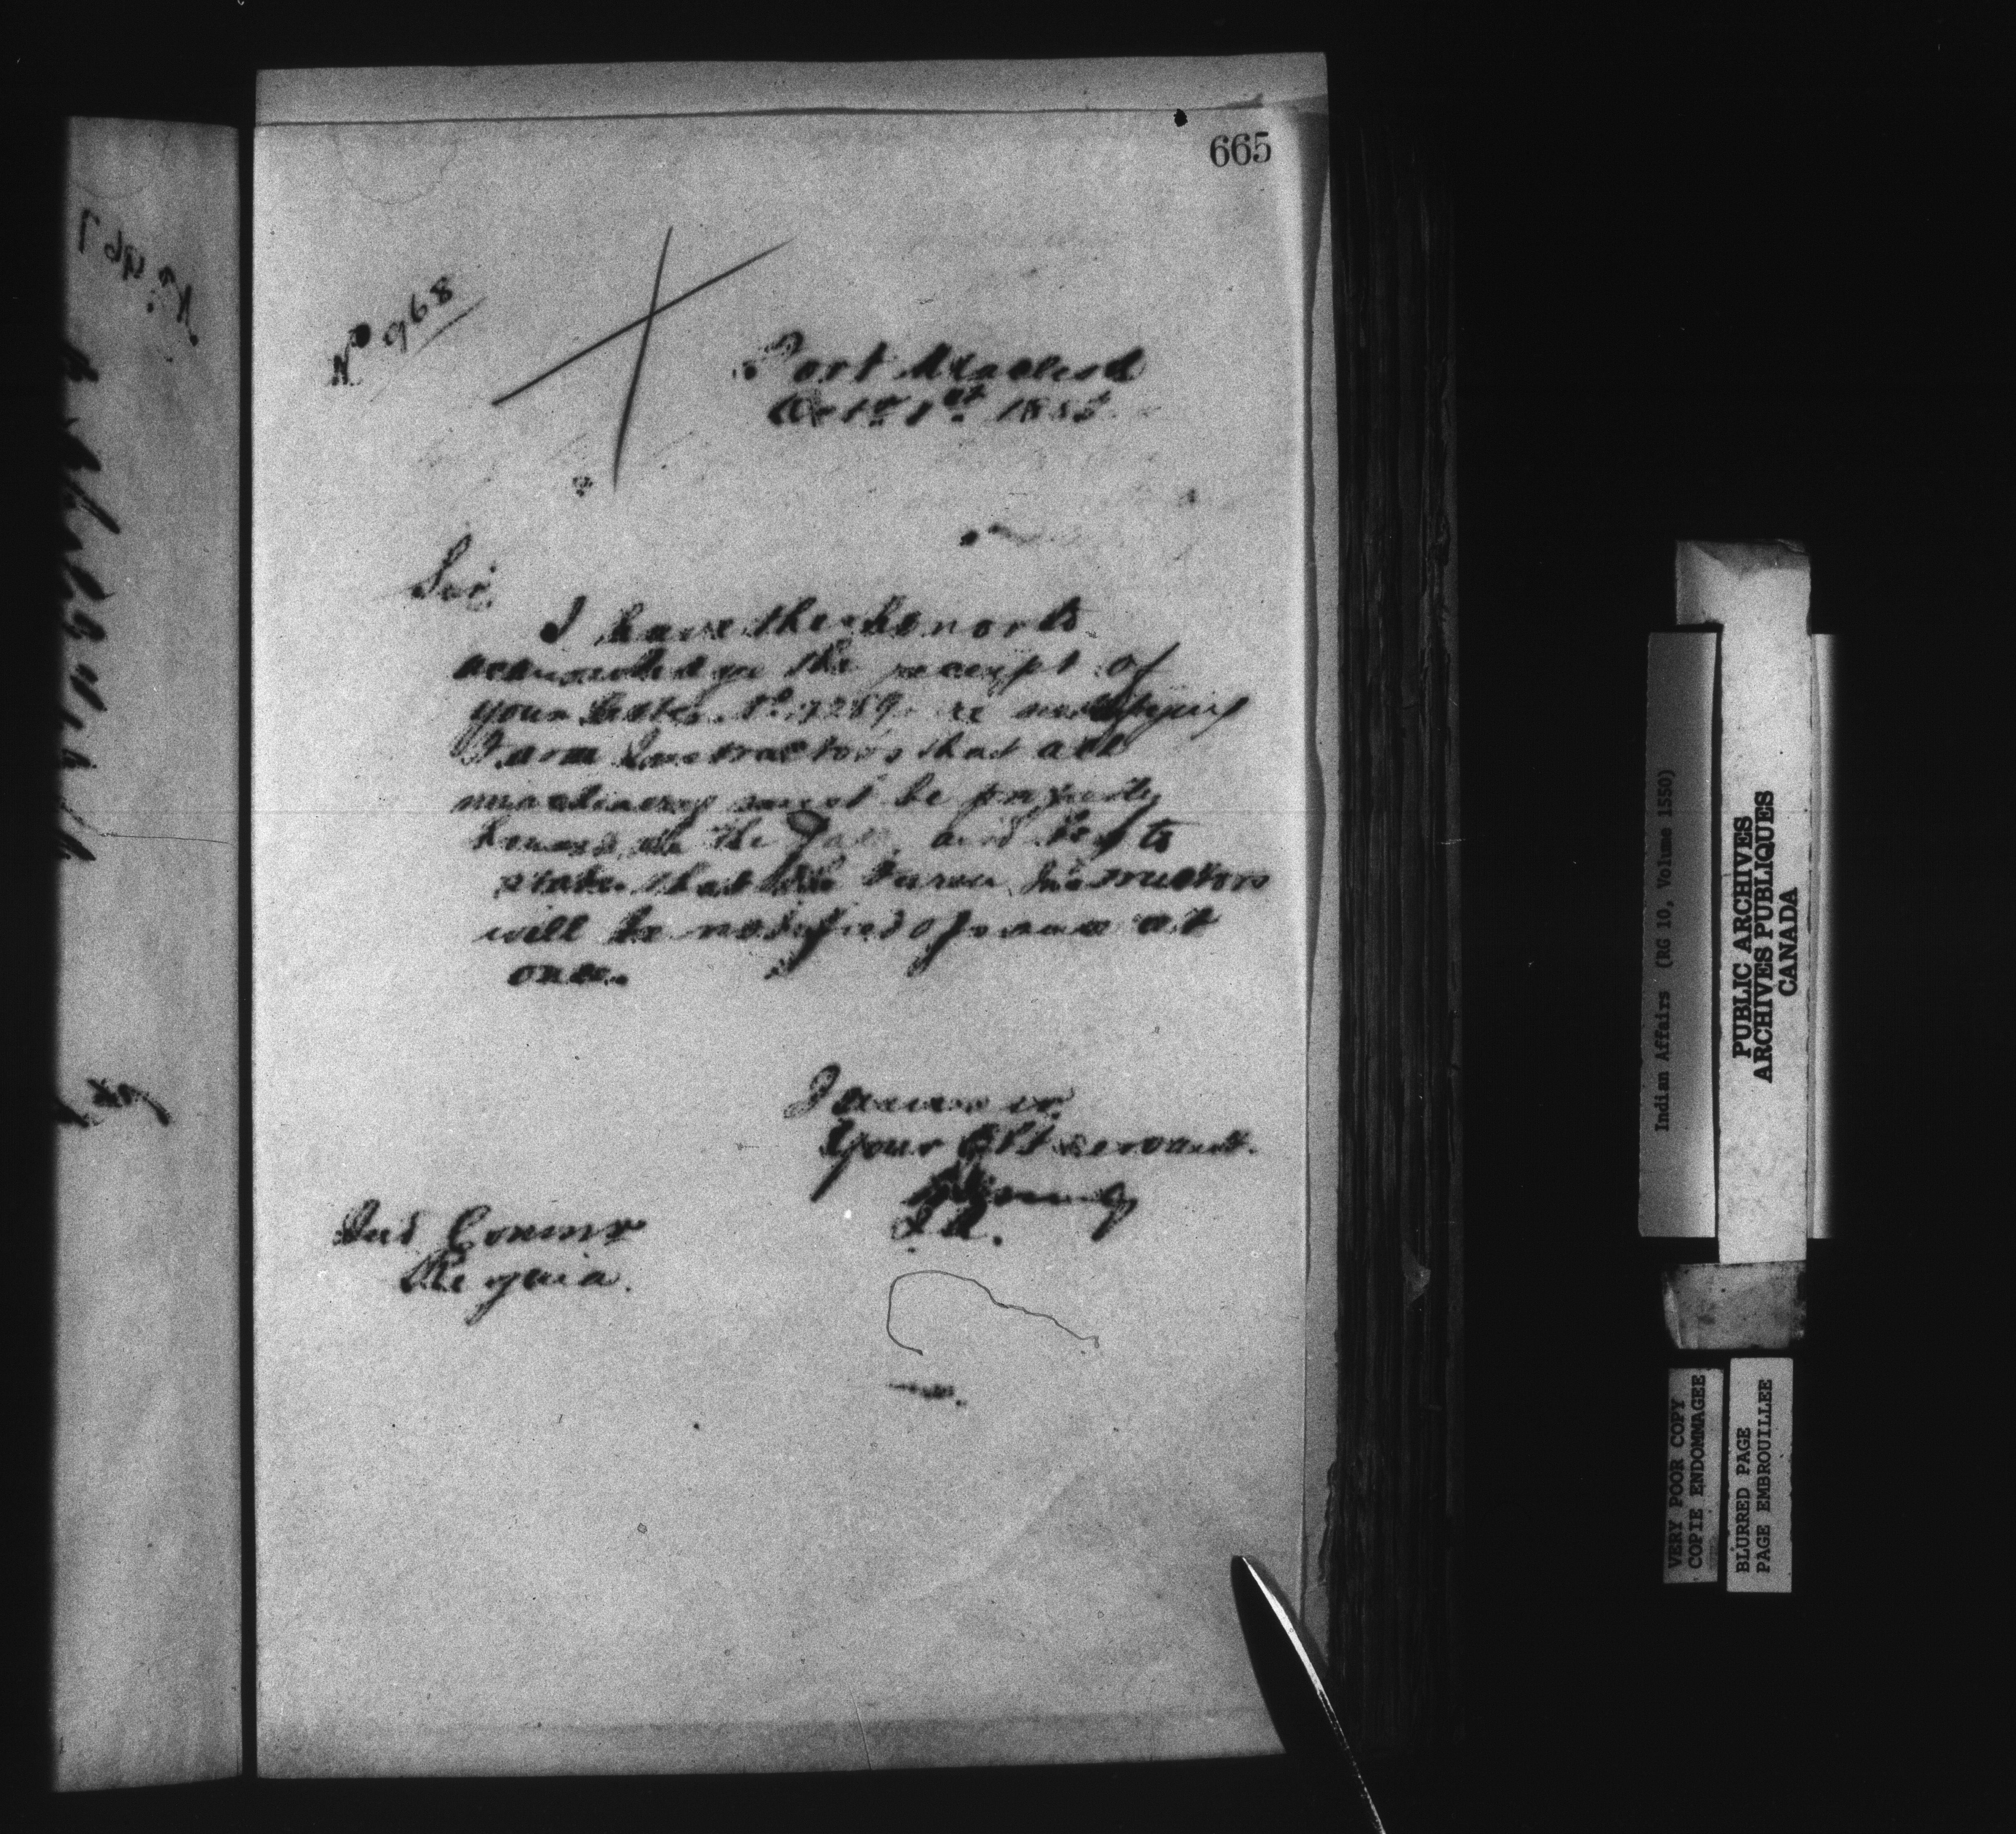 665
No 968
Fort Macleod
Octr 1st 1885
Sir
I have the honor to
acknowledge the receipt of
your letter No 9289 re notifying
Farm Instructors that all
machinery must be properly
housed in the Fall, and beg to
state that the Farm Instructors
will be notified of same at
once.
I remain sir
Your Obt servant.
I.A.
Ind Commr
Regina.
No 967
Indian Affairs (RG 10, Volume 1550)
PUBLIC ARCHIVES
ARCHIVES PUBLIQUES
CANADA
VERY POOR COPY
COPIE ENDOMMAGEE
BLURRED PAGE
PAGE EMBROUILLEE